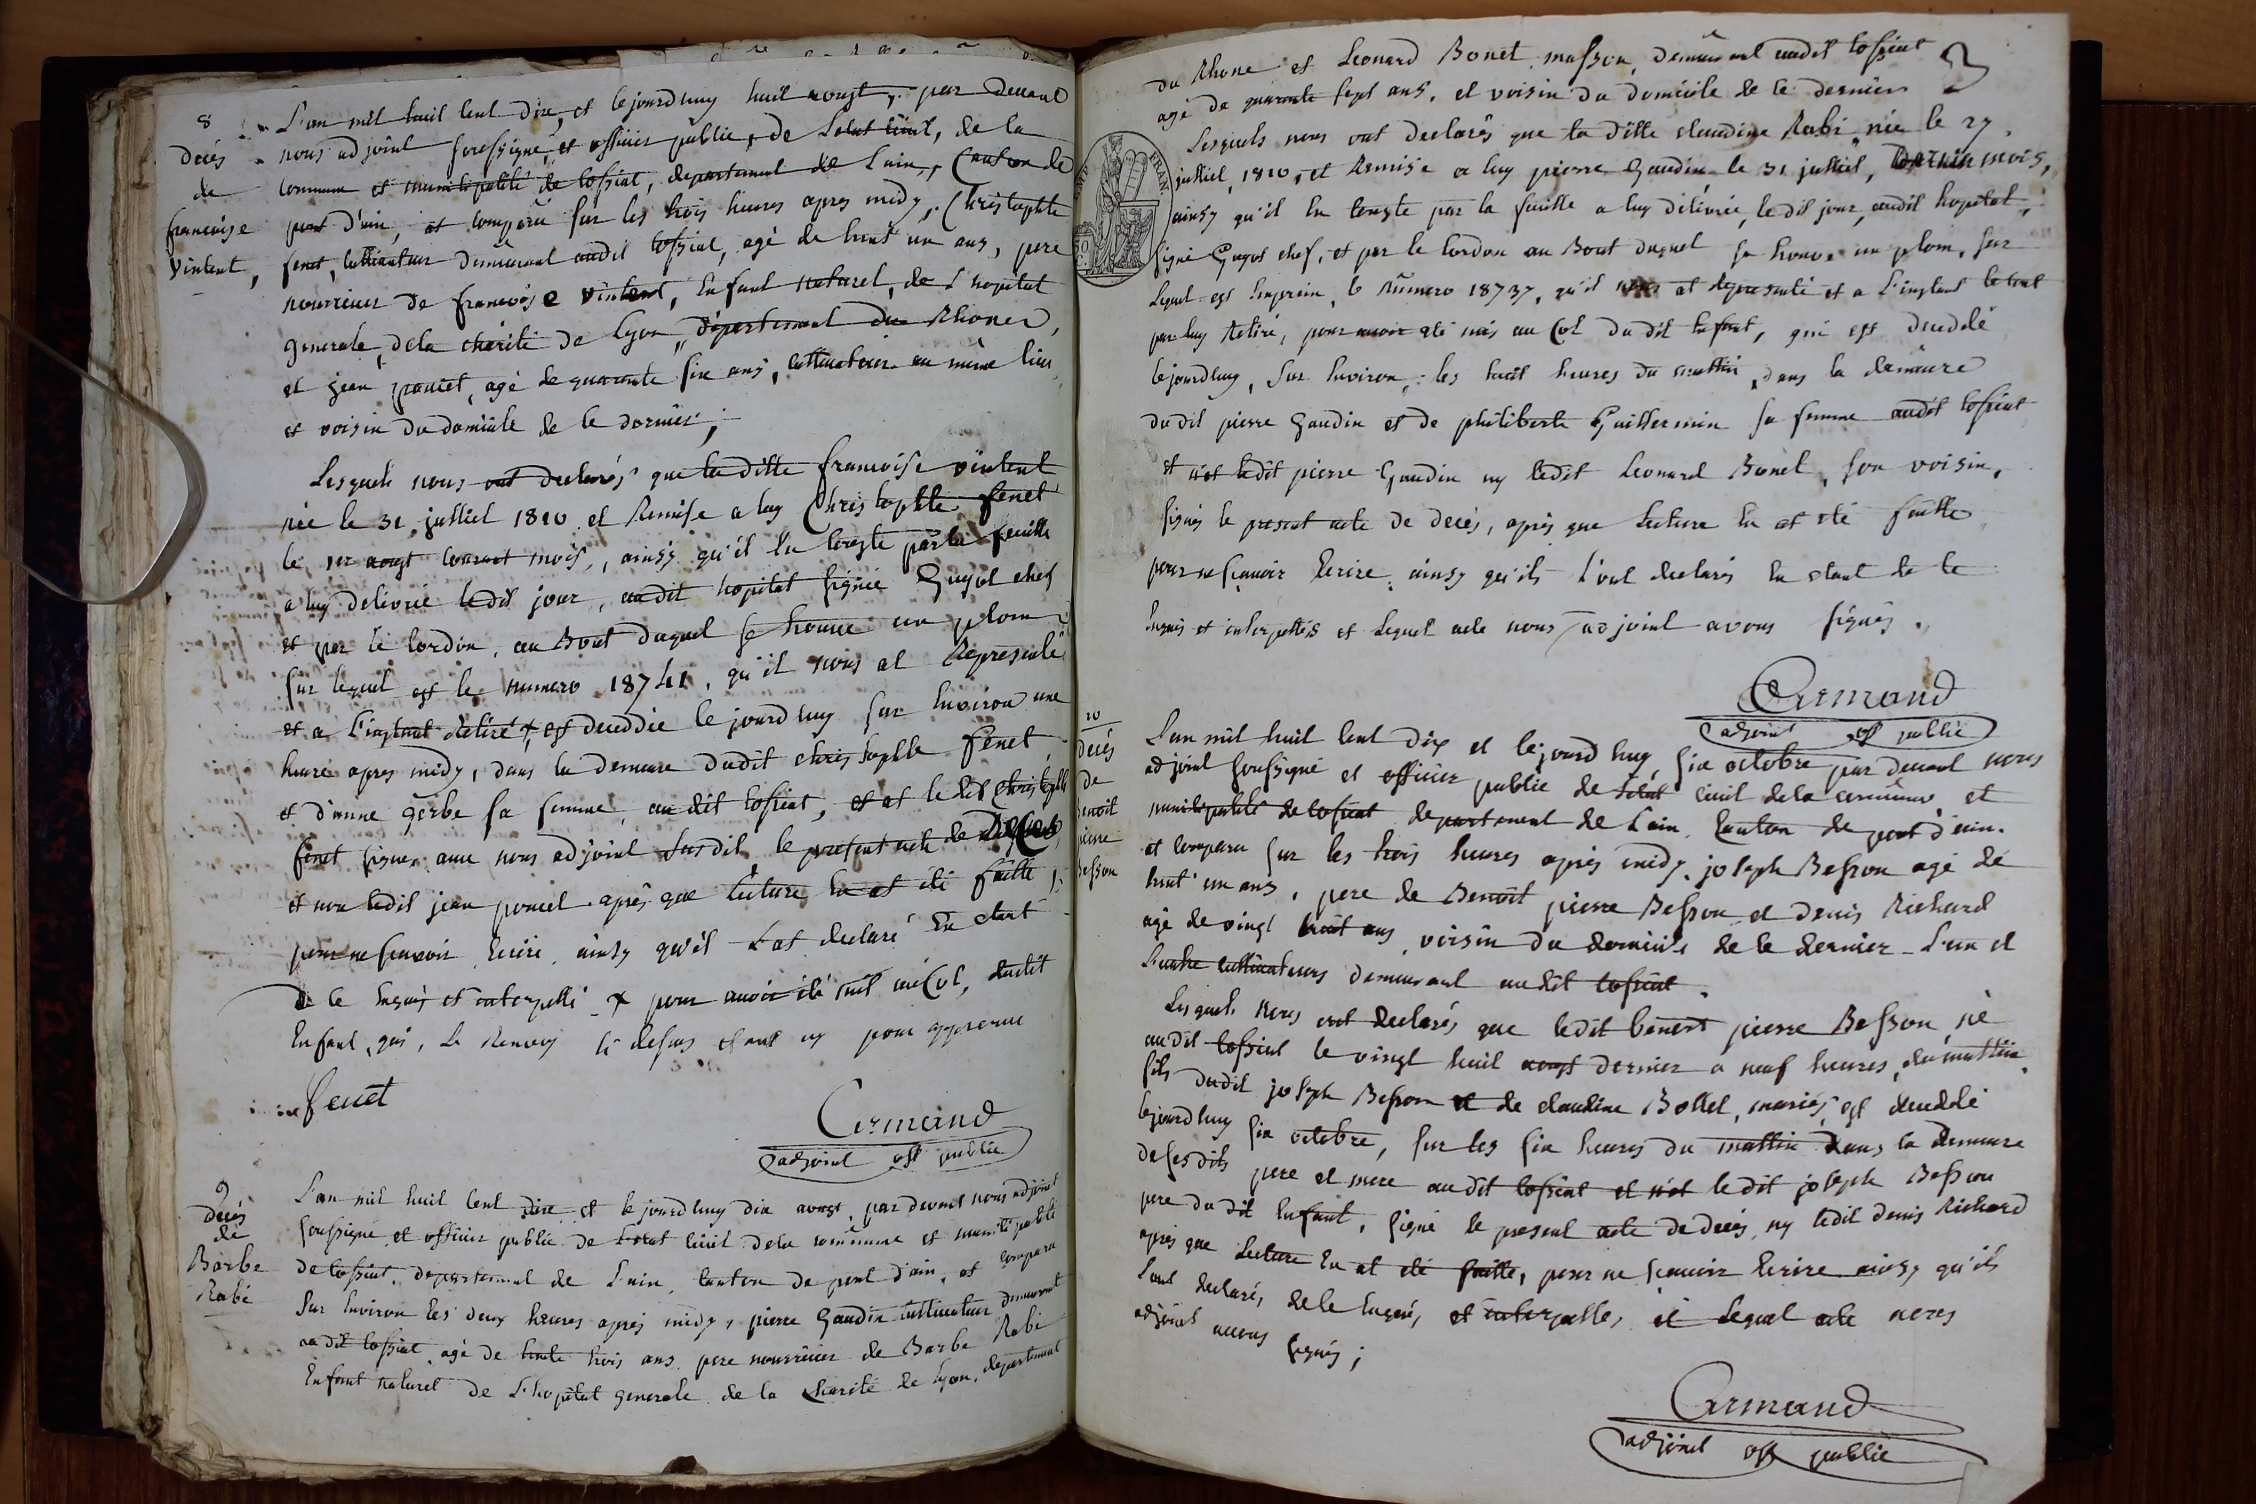 8
decés
de
francoise
vintent,
L'an mil huit cent dix, et lejourdhuy huit aougt, par devant
nous adjoint soussigné, et officier public, de Letat Civil, de la
Commune et municipalité de tossiat, departement de Lain, Canton de
pont d'ain, at comparu sur les trois heures apres midy, Christophle
fenet, cultivateur demeurant audit tossiat, agé de trent un ans, pere
nourricier de francoise vintent, Enfant naturel, de L'hopital
generale, dela charité de Lyon, departement du Rhone,
et jean poncet, agé de quarante six ans, cultivateur au même lieu
et voisin du domicile de le dernier;
Lesquels nous ont declarés que la ditte francoise vintent
née le 31 juilliet 1810 et Remise a luy Christophle fenet
le 1er aougt courant mois, ainsy qu'il En Conste par la feuille
a luy delivrée ledit jour, audit hopital signée Guyot chef
et par le Cordon, au Bout duquel se trouve un plom
sur lequel est le numero 18741, qu'il nous at Representé
et a L'instant Retiré + est deceddée lejourdhuy sur Environ une
heure apres midy, dans la demeure dudit christophle fenet
et d'anne gerbe sa femme, audit tossiat, et at ledit Christophle
fenet signer avec nous adjoint susdit le present acte de Decés
et non ledit jean poncet après que Lecture En at été faitte,
pour ne scavoir Ecrire ainsy qu'il L'at declaré En étant
de le Enquis et interpellé + pour avoir été mit au Col, dudit
Enfant, qui, Le Renvoy ci dessus étant icy pour approuvé
fenet
Armand
adjoint off public
9
decés
de
Barbe
Rabi
L'an mil huit cent dixe et lejourdhuy dix aougt par devant nous adjoint
soussigné et officier public de L'etat Civil dela commune et municipalité
de tossiat, departement de Lain, canton de pont d'ain, at comparu
sur Environ les deux heures apres midy, pierre Gaudin cultivateur demeurant
audit tossiat agé de trente trois ans pere nourricier de Barbe Rabi
Enfant naturel de L'hopital generale de la Charité de Lyon, departement
du Rhone et Leonard Bonet masson, demeurant audit tossiat
agé de quarante sept ans, et voisin du domicile de le dernier
Lesquels nous ont declarés que la ditte claudine Rabi née le 27
juilliet, 1810, et Remise a luy pierre Gaudin le 31 juilliet, dernier mois,
ainsy qu'il En Conste par la feuille a luy délivrée, le dit jour, audit hopital,
signé Guyot chef, et par le Cordon au Bout duquel se trouve un plom, sur
Lequel est Emprein, le Numero 18737, qu'il nous at Representé et a L'instant le tout
par luy Retiré, pour avoir été mis au Col du dit Enfant, qui est deceddé
lejourdhuy, sur Environ, les huit heures du mattin, dans la demeure
dudit pierre Gaudin et de philiberte Guillermin sa femme audit tossiat
et n'ot ledit pierre Gaudin ny ledit Leonard Bonet, son voisin,
signés le present acte de decés, après que Lecture En at été faitte
pour ne scavoir Ecrire, ainsy qu'ils L'ont declarés En étant de le
Enquis et interpellés et Lequel acte nous adjoint avons signés.
Armand
adjoint off public
10
decés
de
Benoit
pierre
Besson
L'an mil huit cent dix et lejourdhuy six octobre par devant nous
adjoint soussigné et officier public de L'etat civil dela commune et
municipalité de tossiat departement de Lain, Canton de pont d'ain.
at comparu sur les trois heures après midy, joseph Besson agé de
trent un ans, pere de Benoit pierre Besson et denis Richard
agé de vingt huit ans voisin du domicile de le dernier L'un et
L'autre cultivateurs demeurant audit tossiat.
Lesquels nous ont declarés que ledit benoit pierre Besson né
audit tossiat le vingt huit aougt dernier a neuf heures, du mattin
fils dudit joseph Besson et de claudine Bollet, mariés, est deceddé
lejourdhuy six octobre, sur les six heures du mattin dans la demeure
de ses dits pere et mere audit tossiat et n'ot ledit joseph Besson
pere dudit Enfant, signé le present acte de decés, ny ledit denis Richard
après que Lecture En at été faitte, pour ne scavoir Ecrire ainsy qu'ils
L'ont declarés, de le Enquis, et interpellés, et Lequel acte nous
adjoint avons signés;
Armand
adjoint off public